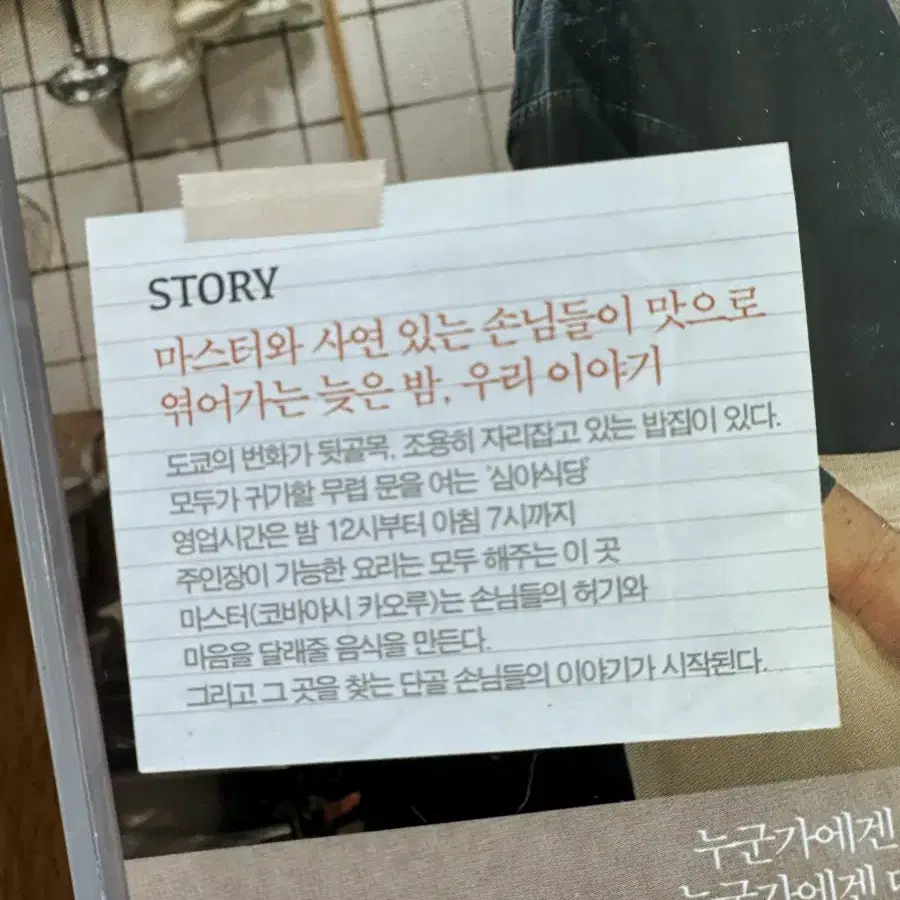 STORY
마스터와 사연 있는 손님들이 맛으로
엮어가는 늦은 밤, 우리 이야기
도쿄의 번화가 뒷골목, 조용히 자리잡고 있는 밥집이 있다.
모두가 귀가할 무렵 문을 여는 '심야식당'
영업시간은 밤 12시부터 아침 7시까지
주인장이 가능한 요리는 모두 해주는 이 곳
마스터(코바야시 카오루)는 손님들의 허기와
마음을 달래줄 음식을 만든다.
그리고 그 곳을 찾는 단골 손님들의 이야기가 시작된다.
누군가에겐
누군가에겐